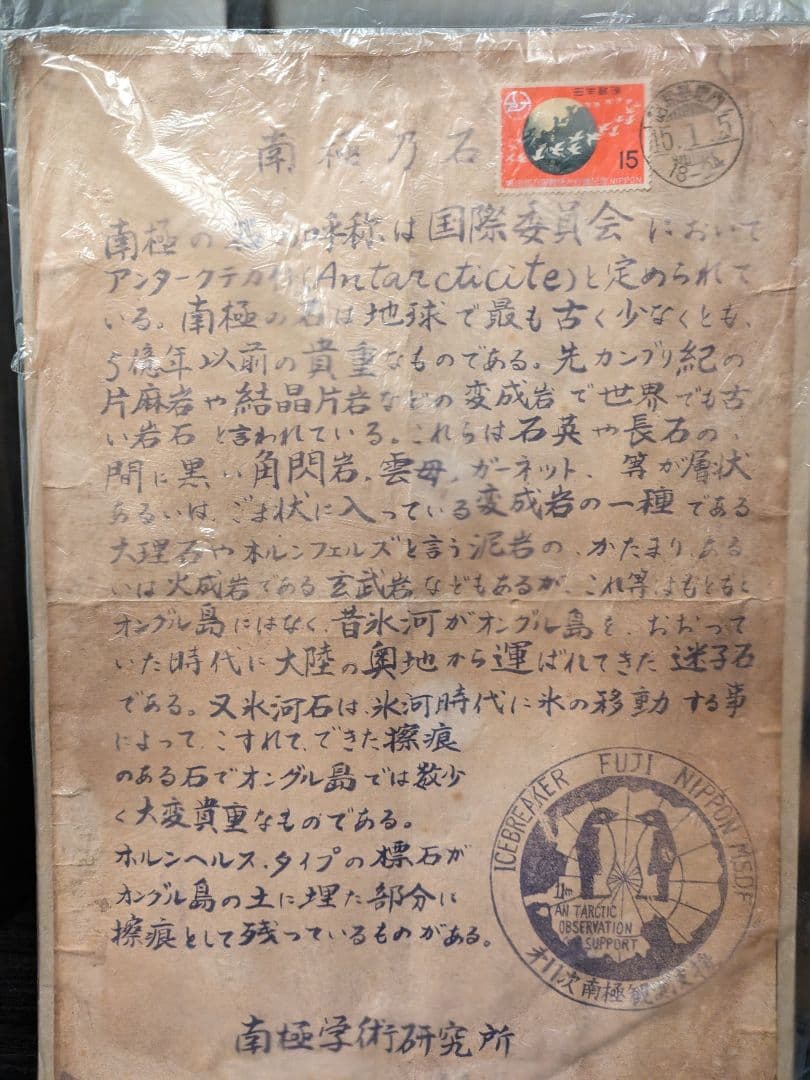 南極乃石
15
NIPPON
南極の石の呼称は国際委員会において
アンタークテカイト(Antarcticite)と定められて
いる。南極の石は地球で最も古く少なくとも、
5億年以前の貴重なものである。先カンブリ紀の
片麻岩や結晶片岩などの変成岩で世界でも古
い岩石と言われている。これらは石英や長石の、
間に黒い角閃岩。雲母。ガーネット、等が層状
あるいは、ごま状に入っている変成岩の一種である
大理石やホルンフェルズと言う泥岩の、かたまり、ある
いは火成岩である玄武岩などもあるが、これ等はもともと
オングル島にはなく、昔氷河がオングル島を、おおって
いた時代に大陸の奥地から運ばれてきた迷子石
である。又氷河石は、氷河時代に氷の移動する事
によって、こすれて、できた擦痕
のある石でオングル島では数少
く大変貴重なものである。
ホルンヘルス.タイプの標石が
オングル島の土に埋た部分に
擦痕として残っているものがある。
ICEBREAKER FUJI NIPPON M.S.D.F
11th
ANTARCTIC
OBSERVATION
SUPPORT
才11次南極観測支援
南極学術研究所